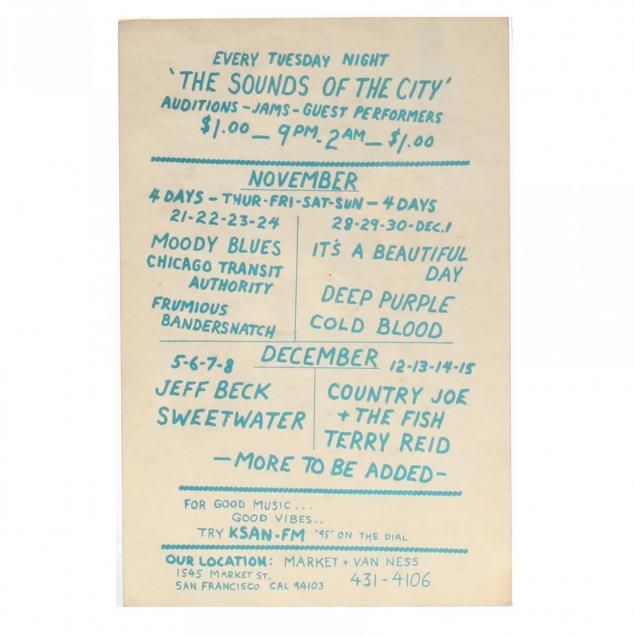 EVERY TUESDAY NIGHT
'THE SOUNDS OF THE CITY'
AUDITIONS - JAMS - GUEST PERFORMERS
$1.00 — 9PM - 2AM — $1.00
NOVEMBER
4 DAYS - THUR-FRI-SAT-SUN - 4 DAYS
21-22-23-24
MOODY BLUES
CHICAGO TRANSIT
AUTHORITY
FRUMIOUS
BANDERSNATCH
28-29-30-DEC.1
IT'S A BEAUTIFUL
DAY
DEEP PURPLE
COLD BLOOD
DECEMBER
5-6-7-8
JEFF BECK
SWEETWATER
12-13-14-15
COUNTRY JOE
+ THE FISH
TERRY REID
- MORE TO BE ADDED -
FOR GOOD MUSIC...
GOOD VIBES..
TRY KSAN-FM '95' ON THE DIAL
OUR LOCATION: MARKET + VAN NESS
1545 MARKET ST.
SAN FRANCISCO CAL 94103
431-4106